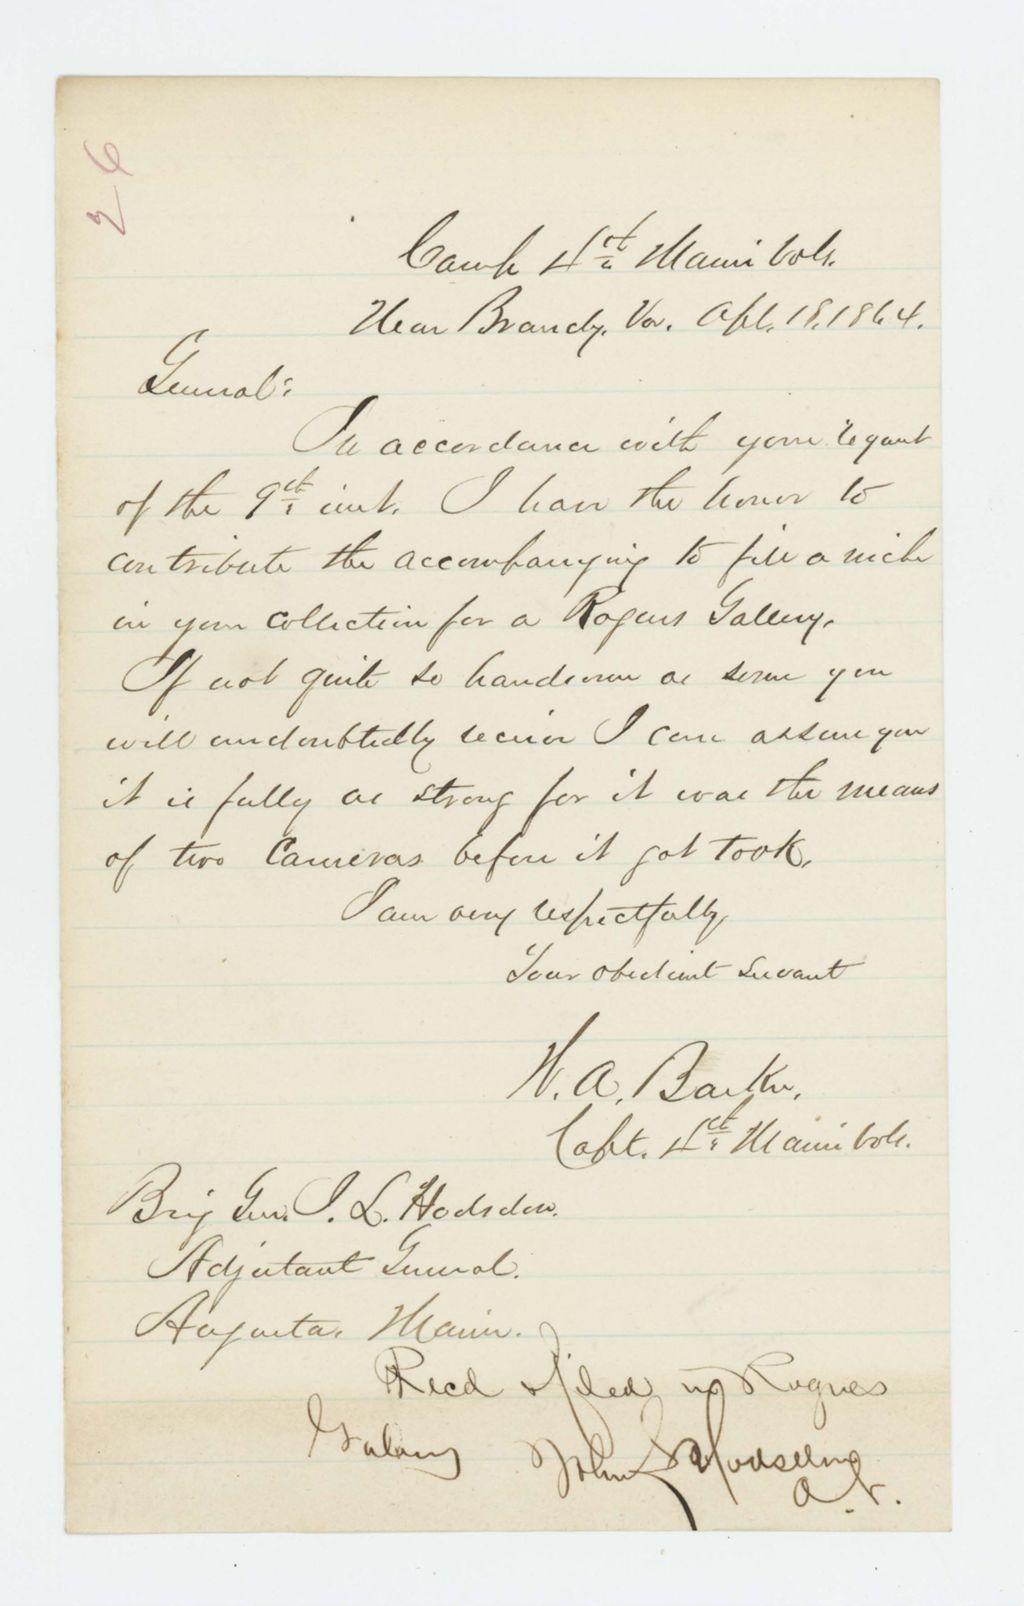 26
Camp 4th Maine Vols.
Near Brandy, Va. Apl. 18, 1864.
General:
In accordance with your request
of the 9th inst. I have the honor to
contribute the accompanying to fill a niche
in your collection for a Rogues Gallery.
If not quite so handsome as some you
will undoubtedly receive I can assure you
it is fully as strong for it was the means
of two Cameras before it got took.
I am very respectfully
Your obedient servant
W. A. Barker.
Capt. 4th Maine Vols.
Brig Gen. J. L. Hodsdon.
Adjutant General.
Augusta, Maine.
Recd & filed in Rogues
Galary John L Hodsdon
A. G.